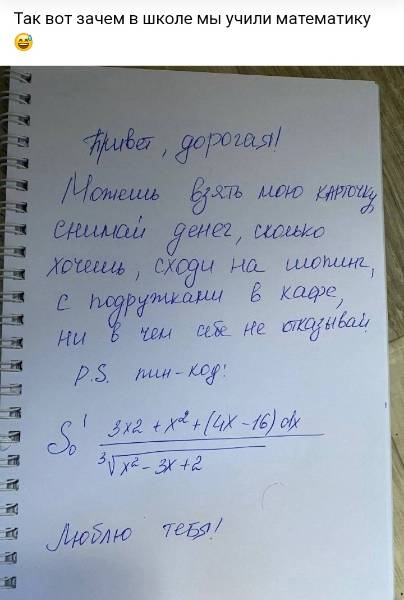 Так вот зачем в школе мы учили математику
😅
Привет, дорогая!
Можешь взять мою карточку,
снимай денег, сколько
хочешь, сходи на шопинг,
с подружками в кафе,
ни в чем себе не отказывай.
P.S. пин-код:
S₀¹ (3x2 + x² + (4x - 16) dx) / ³√(x² - 3x + 2)
Люблю тебя!